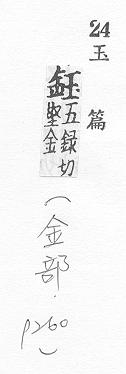 24
玉篇
鈺
五録切
堅金
(金部. p260)